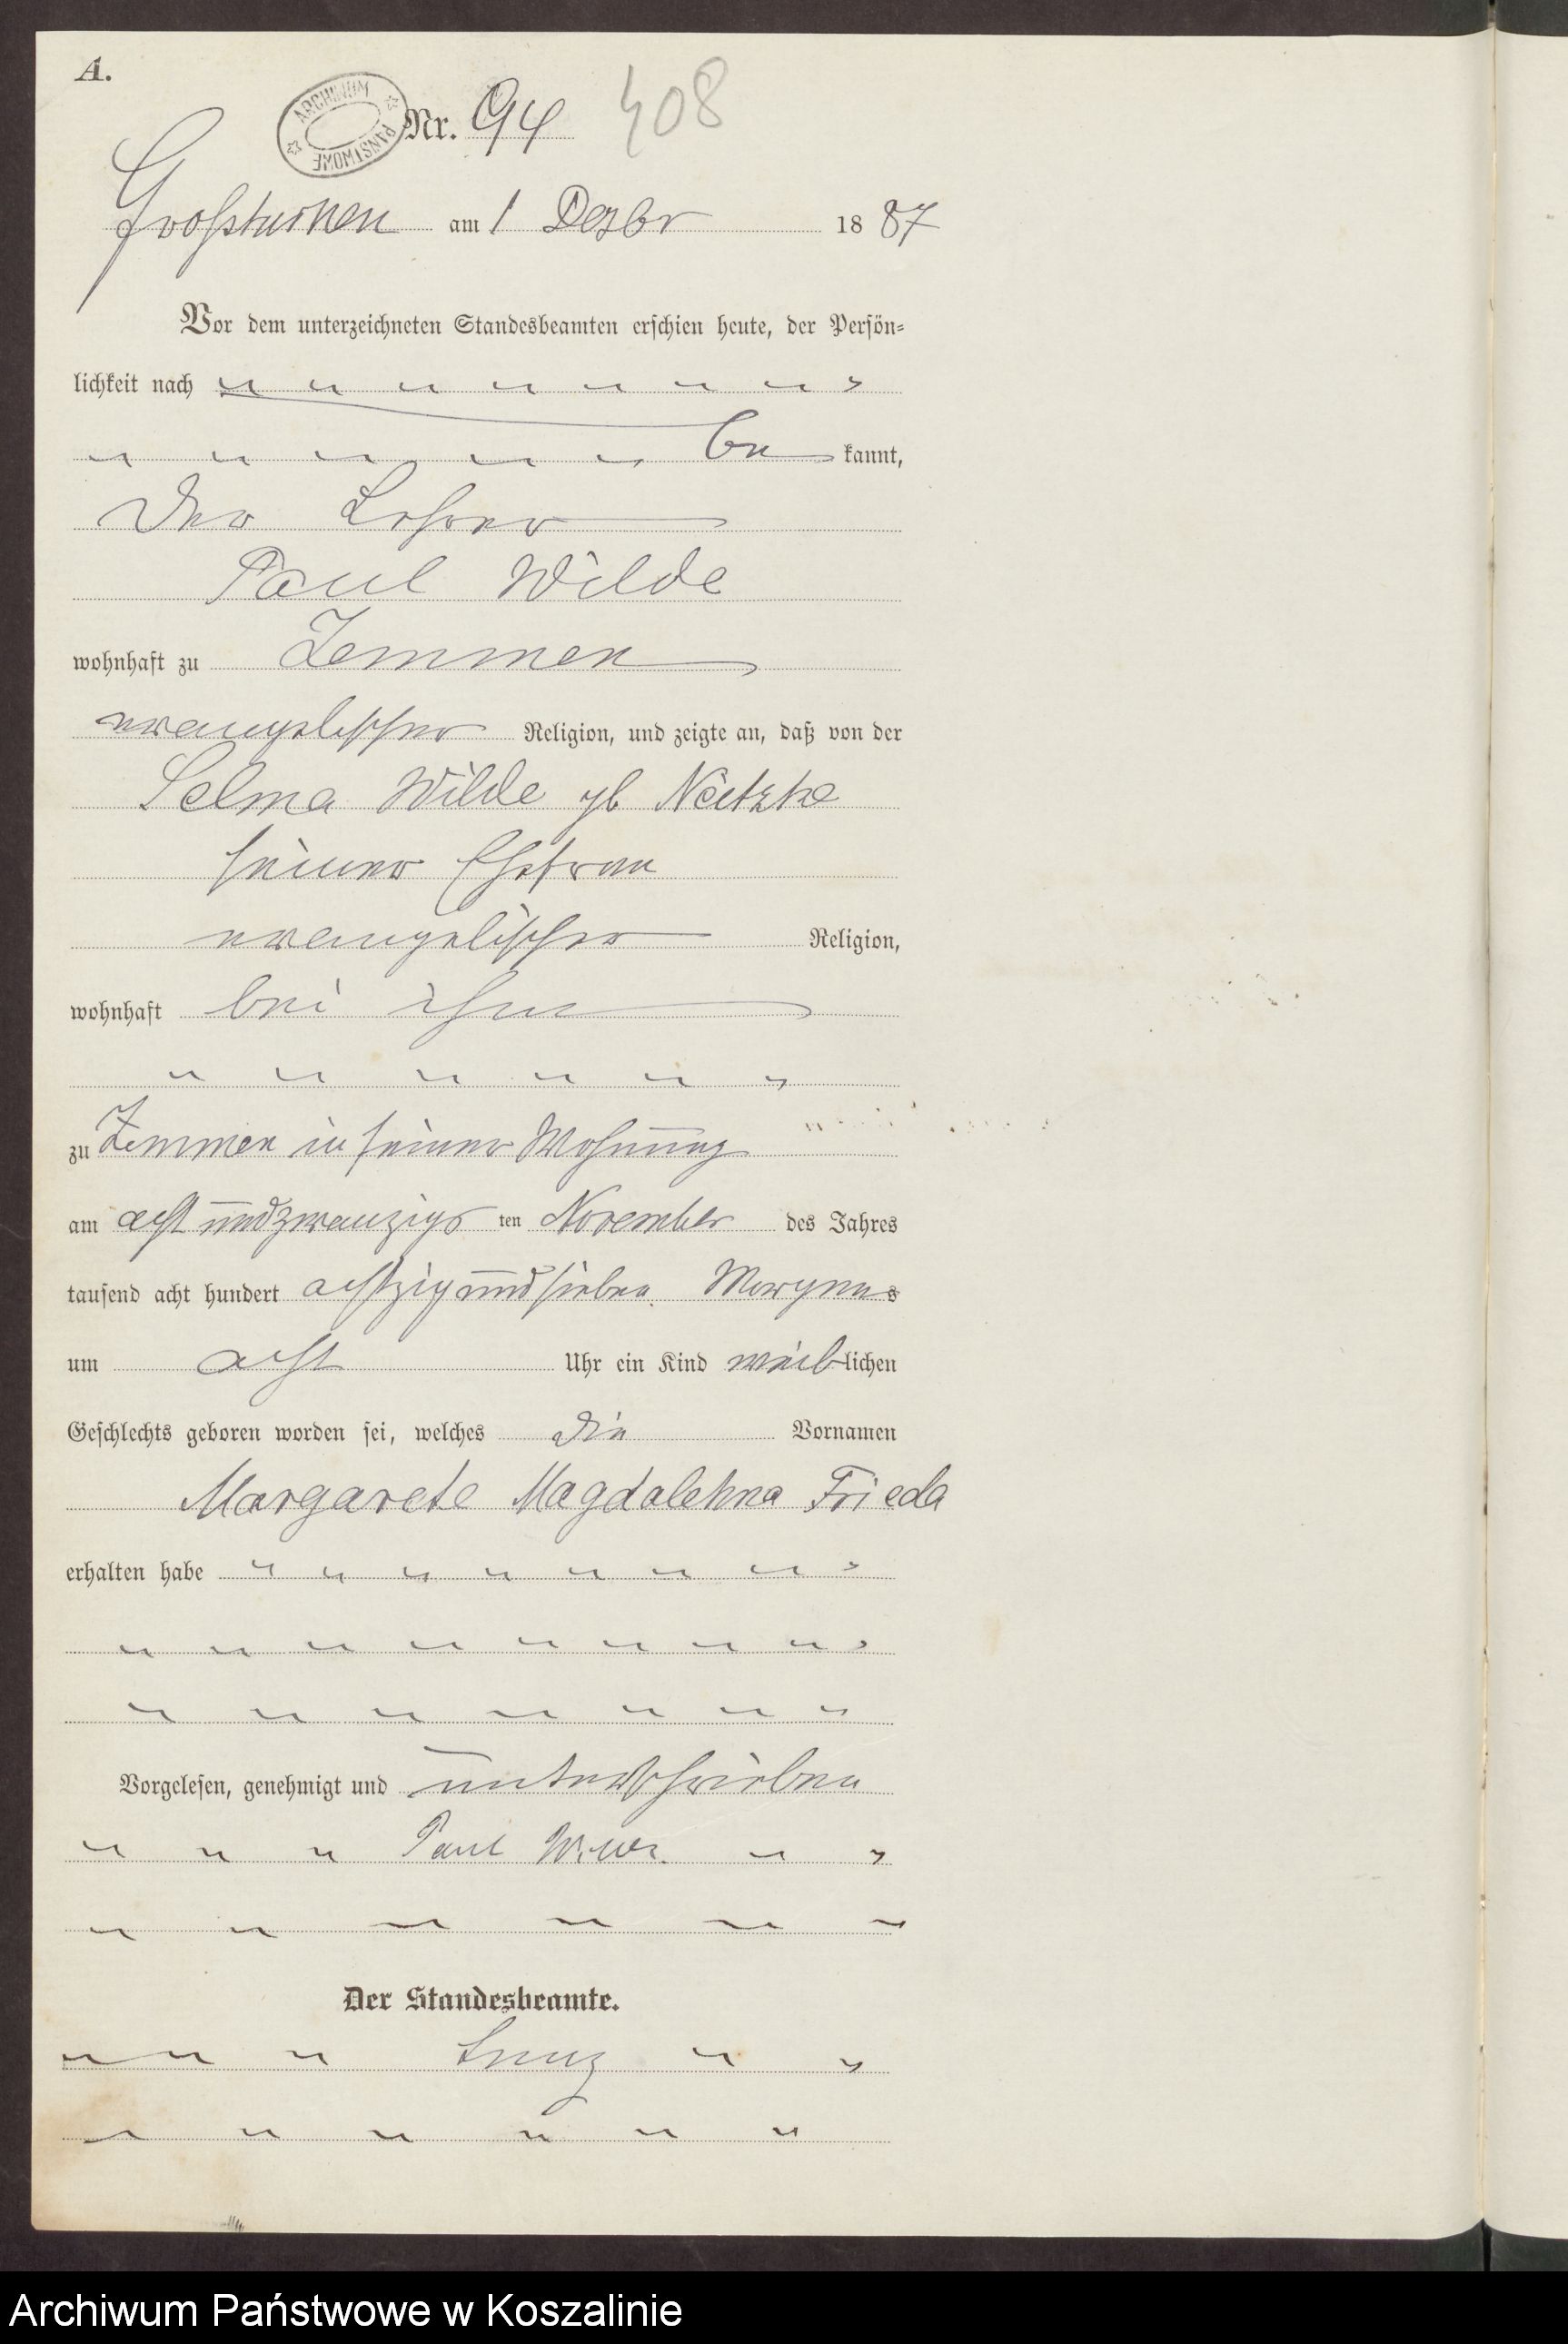 A.
ARCHIWUM PAŃSTWOWE
Nr. 94 408
Großtuchen am 1 Dezbr 1887
Vor dem unterzeichneten Standesbeamten erschien heute, der Persön-
lichkeit nach
be kannt,
der Lehrer
Paul Wilde
wohnhaft zu Zemmen
evangelischer Religion, und zeigte an, daß von der
Selma Wilde gb Nëitzke
seiner Ehefrau
evangelischer Religion,
wohnhaft bei ihm
zu Zemmen in seiner Wohnung
am acht und zwanzigs ten November des Jahres
tausend acht hundert achtzig und sieben Morgens
um acht Uhr ein Kind weiblichen
Geschlechts geboren worden sei, welches die Vornamen
Margarete Magdalehna Frieda
erhalten habe
Vorgelesen, genehmigt und unterschrieben
Paul Wilde.
Der Standesbeamte.
Archiwum Państwowe w Koszalinie